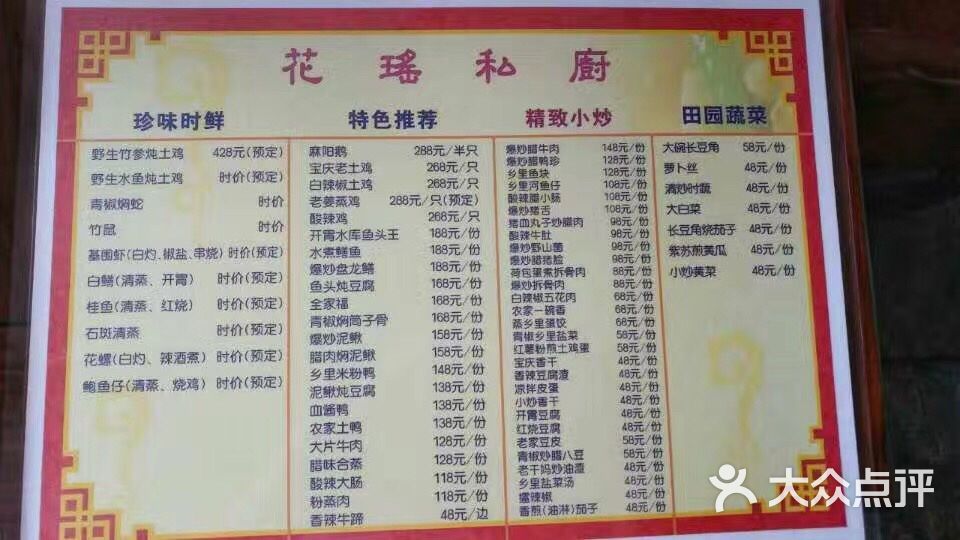 花瑶私廚
珍味时鲜
野生竹参炖土鸡 428元(预定)
野生水鱼炖土鸡 时价(预定)
青椒焖蛇 时价
竹鼠 时价
基围虾(白灼、椒盐、串烧) 时价(预定)
白鳝(清蒸、开胃) 时价(预定)
桂鱼(清蒸、红烧) 时价(预定)
石斑清蒸 时价(预定)
花螺(白灼、辣酒煮) 时价(预定)
鲍鱼仔(清蒸、烧鸡) 时价(预定)
特色推荐
麻阳鹅 288元/半只
宝庆老土鸡 268元/只
白辣椒土鸡 268元/只
老姜蒸鸡 288元/只(预定)
酸辣鸡 268元/只
开胃水库鱼头王 188元/份
水煮鳝鱼 188元/份
爆炒盘龙鳝 188元/份
鱼头炖豆腐 168元/份
全家福 168元/份
青椒焖筒子骨 168元/份
爆炒泥鳅 158元/份
腊肉焖泥鳅 158元/份
乡里米粉鸭 148元/份
泥鳅炖豆腐 138元/份
血酱鸭 138元/份
农家土鸭 138元/份
大片牛肉 128元/份
腊味合蒸 128元/份
酸辣大肠 118元/份
粉蒸肉 118元/份
香辣牛蹄 48元/边
精致小炒
爆炒腊牛肉 148元/份
爆炒腊鸭珍 128元/份
乡里鱼块 128元/份
乡里河鱼仔 108元/份
酸辣腊小肠 108元/份
爆炒猪舌 108元/份
猪血丸子炒腊肉 98元/份
酸辣牛肚 98元/份
爆炒野山菌 98元/份
爆炒腊猪脸 98元/份
荷包蛋煮拆骨肉 88元/份
爆炒拆骨肉 88元/份
白辣椒五花肉 68元/份
农家一碗香 68元/份
蒸乡里蛋饺 68元/份
青椒乡里盐菜 58元/份
红薯粉煎土鸡蛋 58元/份
宝庆香干 48元/份
香辣豆腐渣 48元/份
凉拌皮蛋 48元/份
小炒香干 48元/份
开胃豆腐 48元/份
红烧豆腐 48元/份
老家豆皮 58元/份
青椒炒腊八豆 58元/份
老干妈炒油渣 48元/份
乡里盐菜汤 48元/份
擂辣椒 48元/份
香煎(油淋)茄子 48元/份
田园蔬菜
大碗长豆角 58元/份
萝卜丝 48元/份
清炒时蔬 48元/份
大白菜 48元/份
长豆角烧茄子 48元/份
紫苏煎黄瓜 48元/份
小炒黄菜 48元/份
大众点评